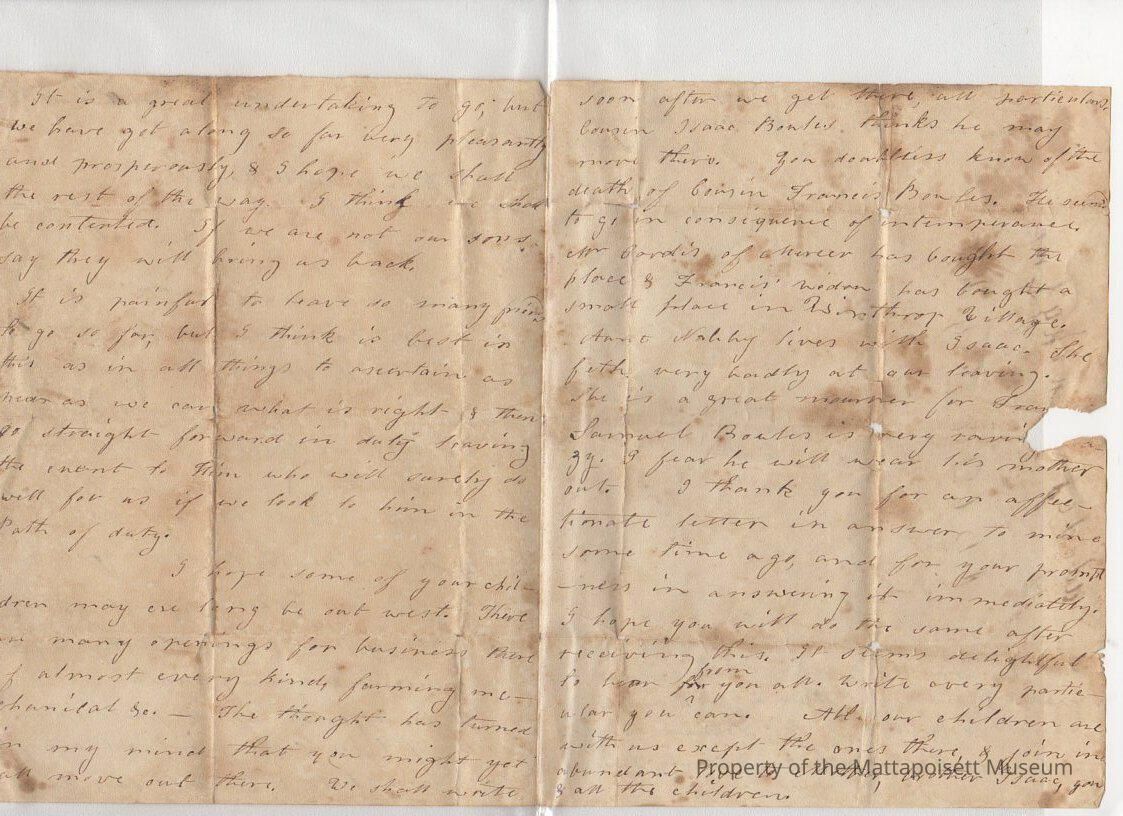 It is a great undertaking to go; but
we have got along so far very pleasantly
and prosperously, & I hope we shall
the rest of the way. I think we shall
be contented. If we are not our sons
say they will bring us back.
It is painful to leave so many
to go so far, but I think is best in
this as in all things to ascertain as
near as we can what is right & then
go straight forward in duty leaving
the event to Him who will surely do
well for us if we look to him in the
Path of duty.
I hope some of your chil-
dren may ere long be out west. There
are many openings for business there
of almost every kind, farming me-
chanical &c. — The thought has turned
in my mind that you might yet
all move out there. We shall write
soon after we get there, all particulars.
Cousin Isaac Bowles thinks he may
move there. You doubtless know of the
death of Cousin Francis Bowles. He
to go in consequence of intemperance.
Mr of Mercer has bought the
place & Francis' widow has bought a
small place in Winthrop Village.
Aunt Nabby lives with Isaac. She
felt very badly at our leaving.
She is a great mourner for
Samuel Bowles is very
zy. I fear he will wear his mother
out. I thank you for an affec-
tionate letter in answer to mine
some time ago, and for your prompt
-ness in answering it immediately.
I hope you will do the same after
receiving this. It seems delightful
to hear from you all. Write every partic-
ular you can. All our children are
with us except the ones there, & join in
abundant love to brother Isaac, you
& all the children.
Property of the Mattapoisett Museum